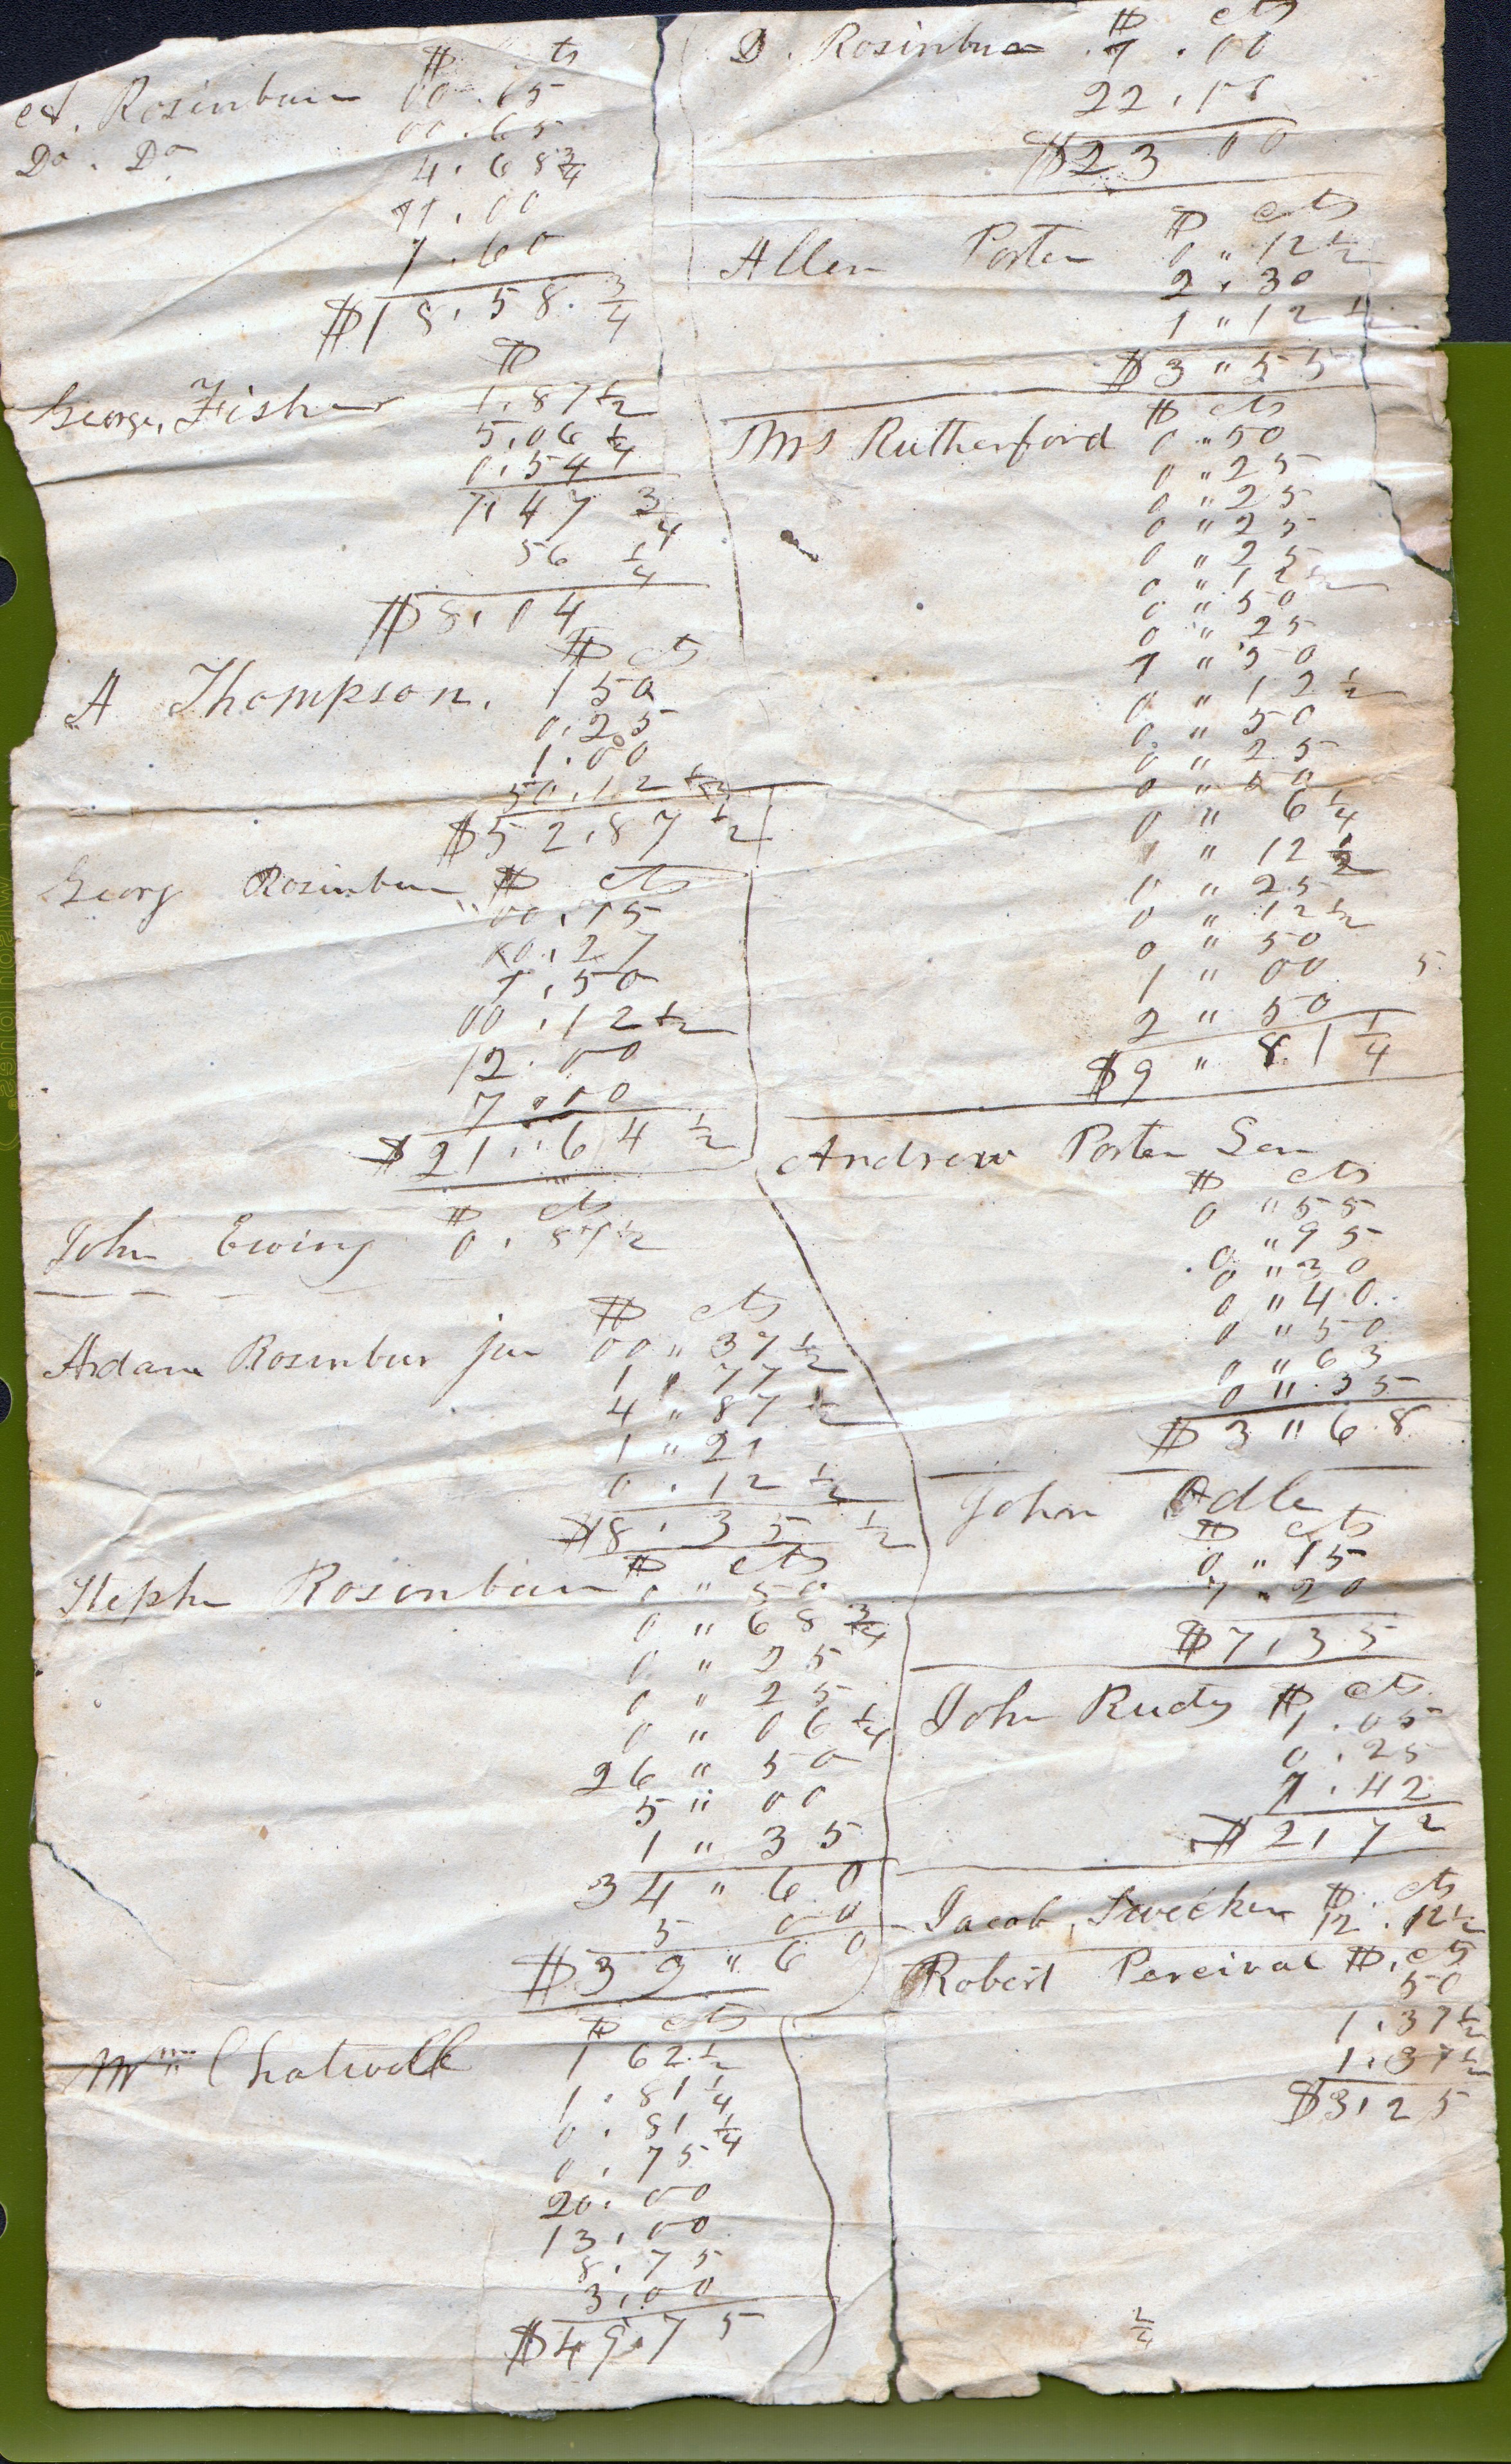 $ cts
A. Rosinbum 00.15
Do. Do. 00.15
4.68 3/4
11.00
1.60
$18.58.3/4
$
George, Fisher 1.87 1/2
5.06 1/4
0.54
7.47 3/4
56 1/4
$8.04
$ cts
A Thompson. 1 50
0.25
1.00
50.12 1/2
$52.87 1/2
Georg Rosinbum $ cts
00.15
00.27
1.50
00.12 1/2
12.00
7.00
$21.64 1/2
$ cts
John Ewing 0.87 1/2
$ cts
Adam Rosinbur jun 00 " 37 1/2
1 " 77
4 " 87 1/2
1 " 21
0.12 1/2
$8.35 1/2
$ cts
Steph Rosinbum 0 " 50
0 " 68 3/4
0 " 25
0 " 25
0 " 06 1/4
26 " 50
5 " 00
1 " 35
34 " 60
5 00
$39 " 60
$ cts
Wm Chatwell 1 62 1/2
1.81 1/4
0.81 1/4
0.75
20.00
13.00
8.75
3.00
$49.75
$ cts
D. Rosinbum 1.00
22.00
$23 00
$ cts
Allen Porter 0 " 12 1/2
2.30
1 " 12 1/2
$3 " 55
$ cts
Mrs Rutherford 0 " 50
0 " 25
0 " 25
0 " 25
0 " 25
0 " 12 1/2
0 " 50
0 " 25
1 " 50
0 " 12 1/2
0 " 50
0 " 25
0 "
0 " 6 1/4
" 12 1/2
0 " 25
0 " 12 1/2
0 " 50
1 " 00 5
2 " 50
$9 " 81 1/4
Andrew Porter Sen
$ cts
0 " 55
0 " 95
0 " 30
0 " 40
0 " 50
0 " 63
0 " 35
$3 " 68
John Adle
$ cts
0 " 15
7 " 20
$7.35
John Rudy $ cts
1.05
0.25
1.42
$2.72
Jacob Swecker $ cts
12.12 1/2
Robert Percival $. cts
50
1.37 1/2
1.37 1/2
$3.25
2/4